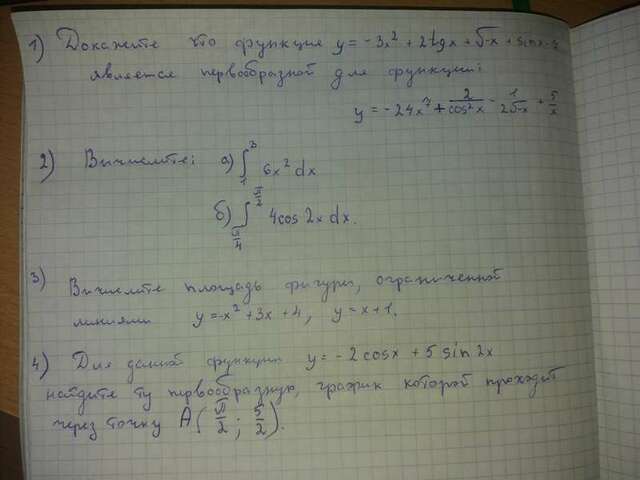 1) Докажите что функция y = -3x² + 2tgx + √-x + sinx-7
является первообразной для функции:
y = -24x⁷ + 2/cos²x - 1/2√-x + 5/x
2) Вычислите: а) ∫₁³ 6x² dx
б) ∫_{π/4}^{π/2} 4cos 2x dx.
3) Вычислите площадь фигуры, ограниченной
линиями y = -x² + 3x + 4, y = x + 1.
4) Для данной функции y = -2cosx + 5sin2x
найдите ту первообразную, график которой проходит
через точку A(π/2; 5/2).